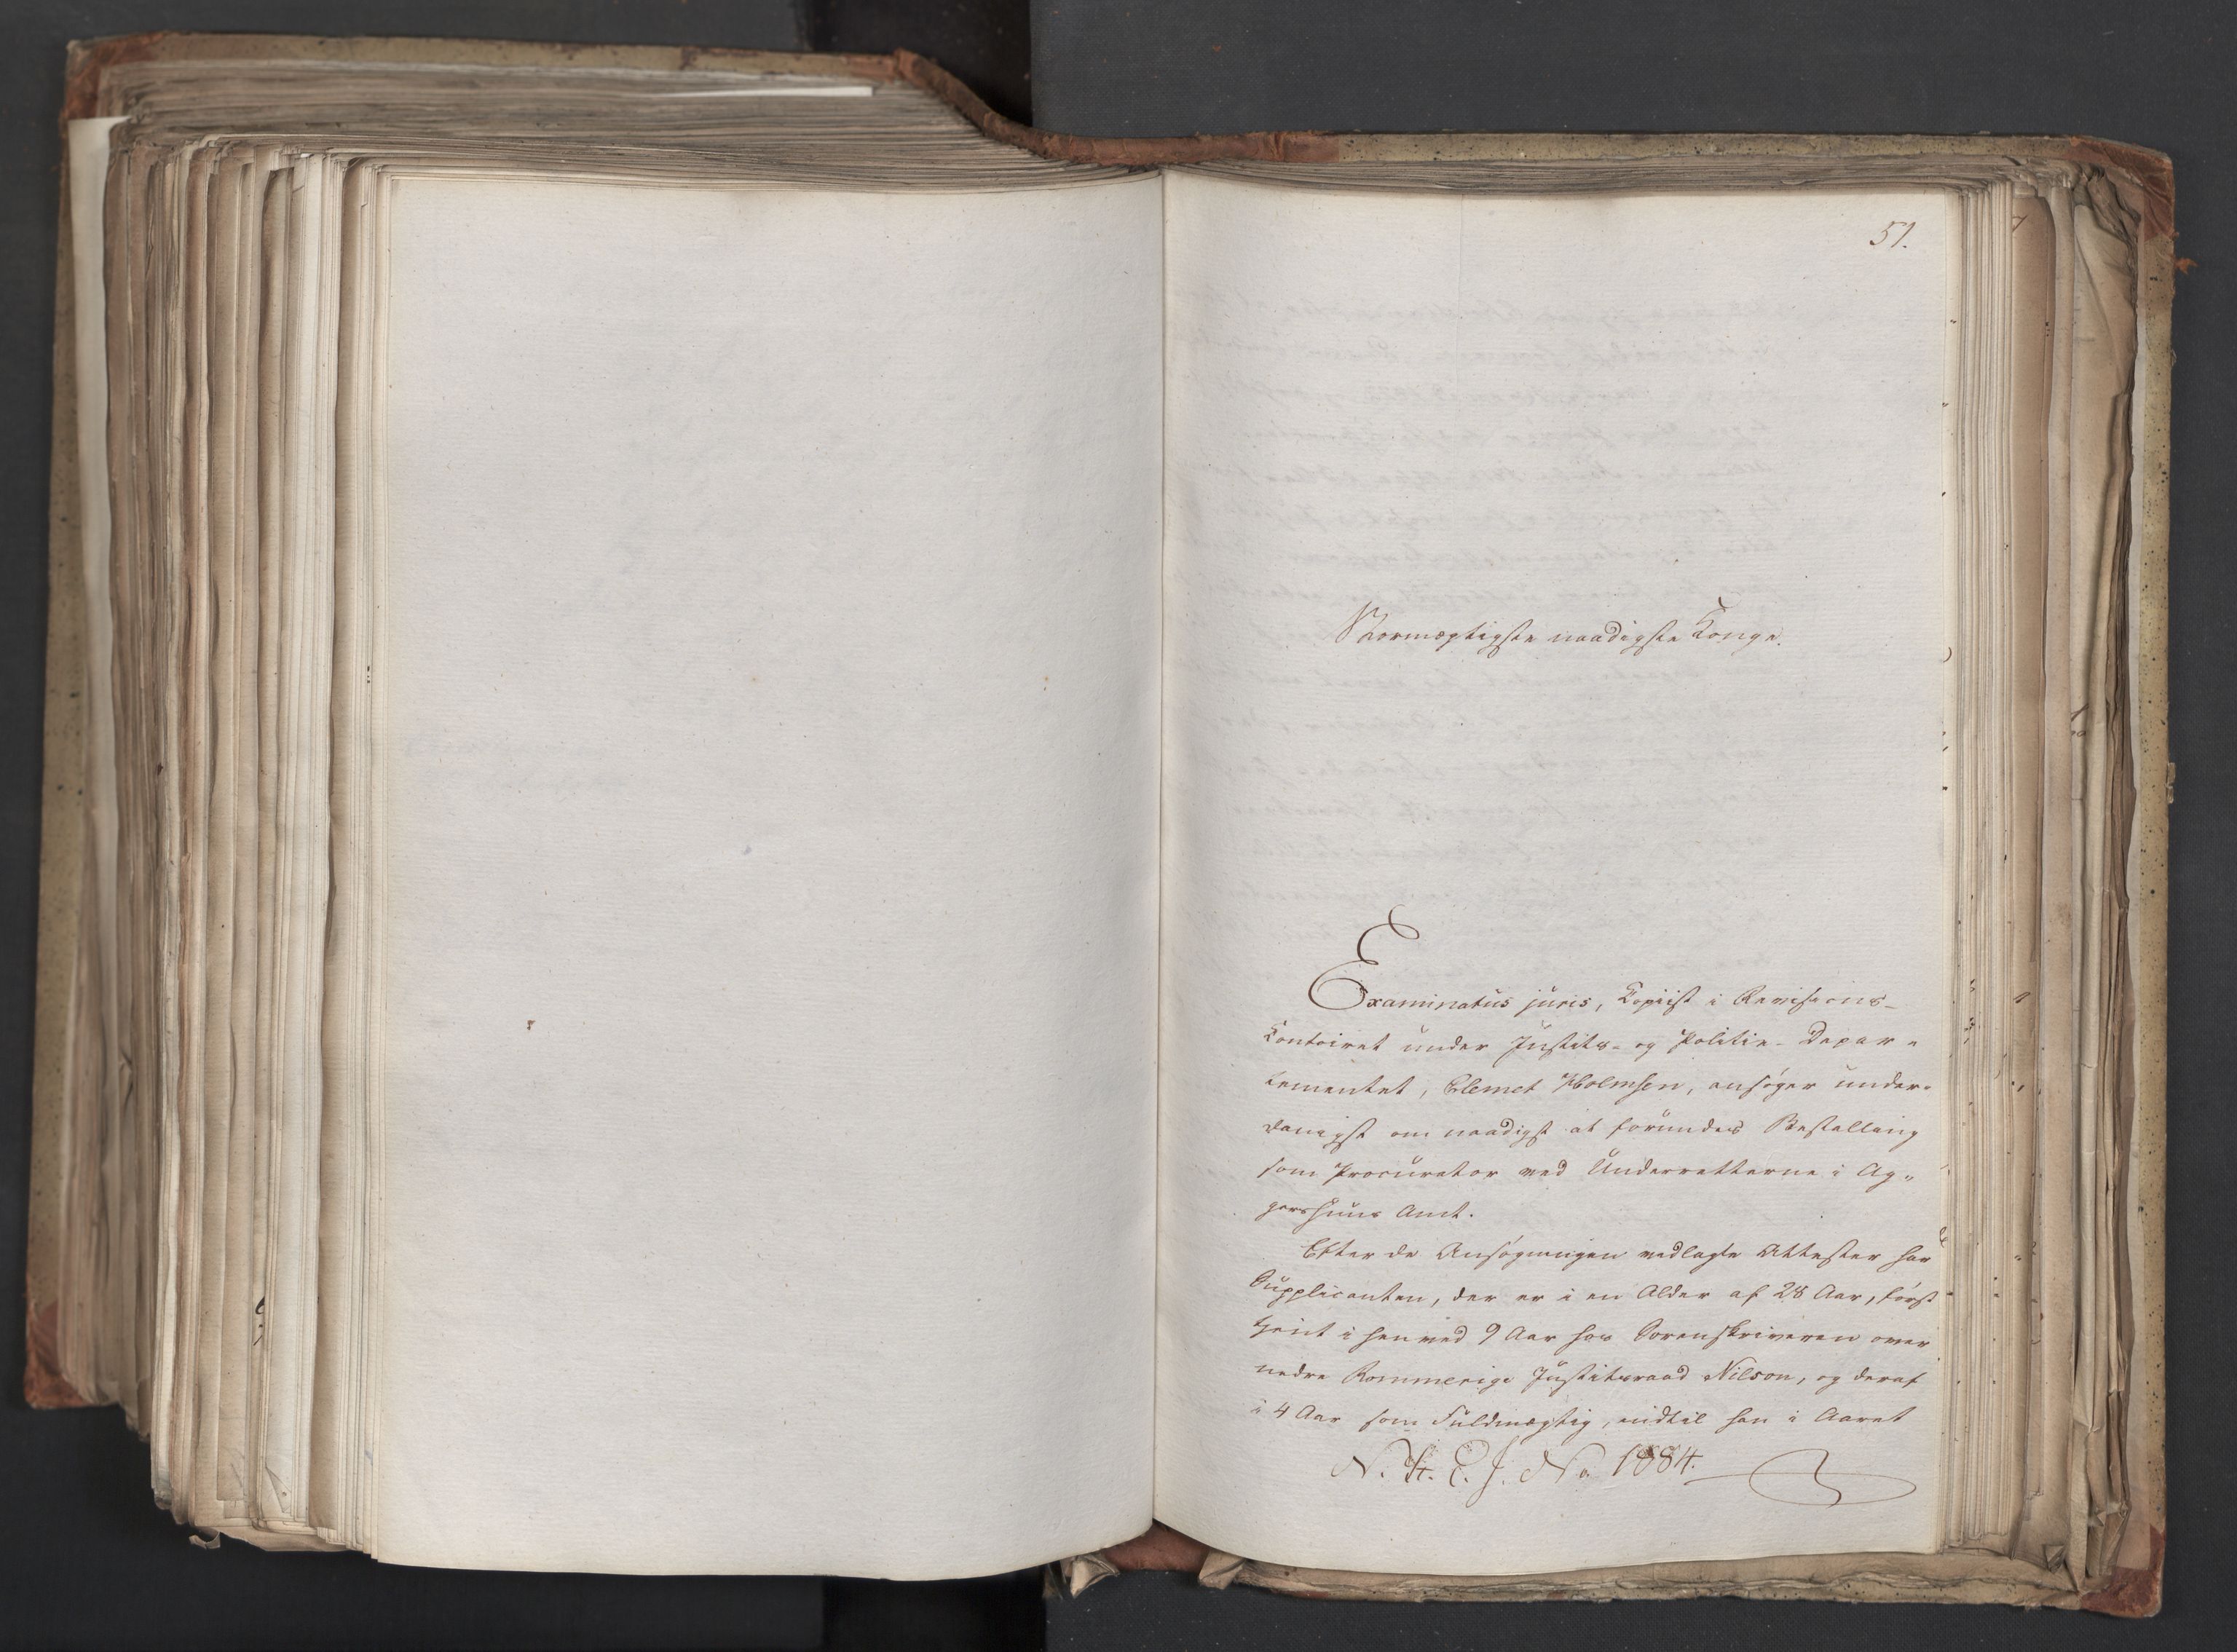 51.
Stormægtigste naadigste Konge.
Examinatus juris, Copiist i Revisions-
Contoiret under Justits- og Politie-Depar-
tementet, Clemet Holmsen, ansøger under-
danigst om naadigst at forundes Bestalling
som Procurator ved Underretterne i Ag-
gershuus Amt.
Efter de Ansøgningen vedlagte Attester har
Supplicanten, der er i en Alder af 28 Aar, først
tjent i henved 9 Aar hos Sorenskriveren over
nedre Rommerige Justitsraad Nilson, og deraf
i 4 Aar som Fuldmægtig, indtil han i Aaret
N. H. E. J. No 1884.